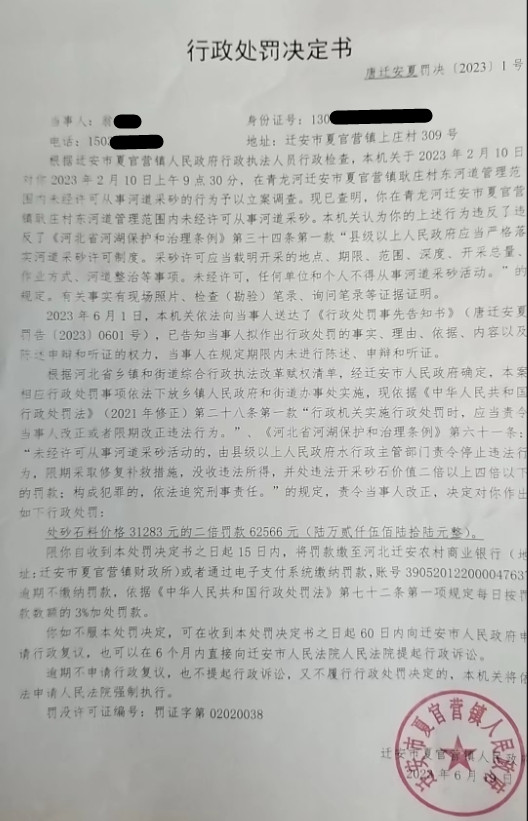 行政处罚决定书
唐迁安夏罚决〔2023〕1 号
当事人：
身份证号：130
电话：150
地址：迁安市夏官营镇上庄村 309 号
根据迁安市夏官营镇人民政府行政执法人员行政检查，本机关于 2023 年 2 月 10 日
对你 2023 年 2 月 10 日上午 9 点 30 分，在青龙河迁安市夏官营镇耿庄村东河道管理范
围内未经许可从事河道采砂的行为予以立案调查。现已查明，你在青龙河迁安市夏官营
镇耿庄村东河道管理范围内未经许可从事河道采砂。本机关认为你的上述行为违反了违
反了《河北省河湖保护和治理条例》第三十四条第一款“县级以上人民政府应当严格落
实河道采砂许可制度。采砂许可应当载明开采的地点、期限、范围、深度、开采总量、
作业方式、河道整治等事项。未经许可，任何单位和个人不得从事河道采砂活动。”的
规定。有关事实有现场照片、检查（勘验）笔录、询问笔录等证据证明。
2023 年 6 月 1 日，本机关依法向当事人送达了《行政处罚事先告知书》（唐迁安夏
罚告〔2023〕0601 号），已告知当事人拟作出行政处罚的事实、理由、依据、内容以及
陈述申辩和听证的权力，当事人在规定期限内未进行陈述、申辩和听证。
根据河北省乡镇和街道综合行政执法改革赋权清单，经迁安市人民政府确定，本案
相应行政处罚事项依法下放乡镇人民政府和街道办事处实施，现依据《中华人民共和国
行政处罚法》（2021 年修正）第二十八条第一款“行政机关实施行政处罚时，应当责令
当事人改正或者限期改正违法行为。”、《河北省河湖保护和治理条例》第六十一条：
“未经许可从事河道采砂活动的，由县级以上人民政府水行政主管部门责令停止违法行
为，限期采取修复补救措施，没收违法所得，并处违法开采砂石价值二倍以上四倍以下
的罚款；构成犯罪的，依法追究刑事责任。”的规定，责令当事人改正，决定对你作出
如下行政处罚：
处砂石料价格 31283 元的二倍罚款 62566 元（陆万贰仟伍佰陆拾陆元整）。
限你自收到本处罚决定书之日起 15 日内，将罚款缴至河北迁安农村商业银行（地
址：迁安市夏官营镇财政所）或者通过电子支付系统缴纳罚款，账号 390520122000047637
逾期不缴纳罚款，依据《中华人民共和国行政处罚法》第七十二条第一项规定每日按罚
款数额的 3%加处罚款。
你如不服本处罚决定，可在收到本处罚决定书之日起 60 日内向迁安市人民政府申
请行政复议，也可以在 6 个月内直接向迁安市人民法院人民法院提起行政诉讼。
逾期不申请行政复议，也不提起行政诉讼，又不履行行政处罚决定的，本机关将依
法申请人民法院强制执行。
罚没许可证编号：罚证字第 02020038
迁安市夏官营镇人民政府
2023 年 6 月 日
迁安市夏官营镇人民政府